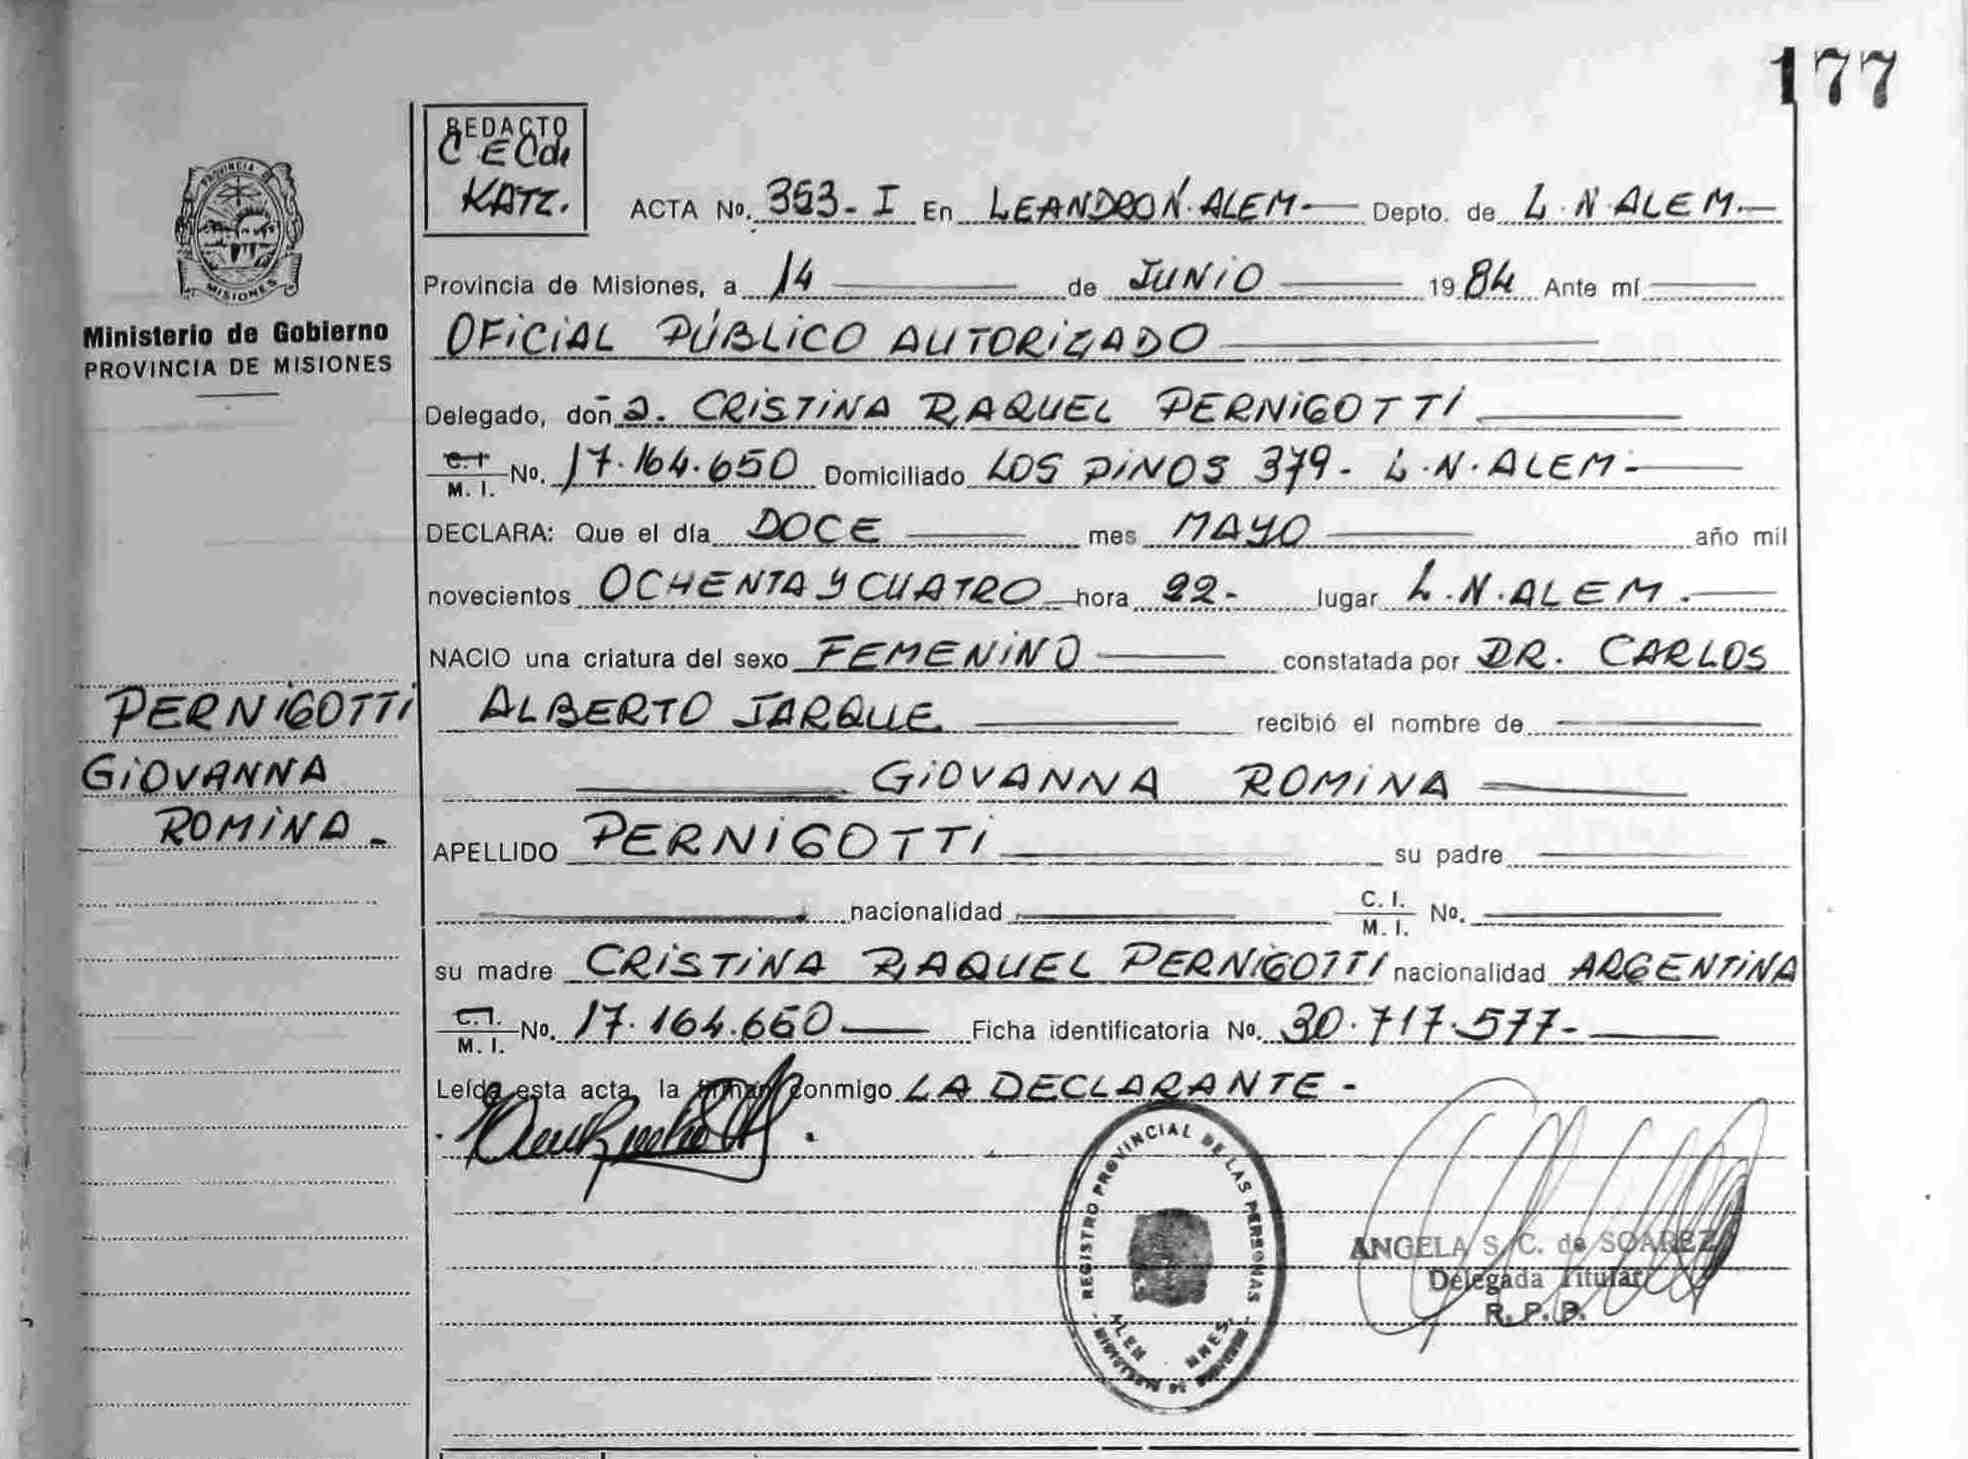 177
REDACTO
C E C de
KATZ.
PROVINCIA DE
MISIONES
Ministerio de Gobierno
PROVINCIA DE MISIONES
ACTA No. 353-I En LEANDRO N. ALEM Depto. de L. N. ALEM.
Provincia de Misiones, a 14 de JUNIO 1984 Ante mí
OFICIAL PÚBLICO AUTORIZADO
Delegado, doña. CRISTINA RAQUEL PERNIGOTTI
C.I. M.I. No. 17.164.650 Domiciliado LOS PINOS 379- L.N.ALEM-
DECLARA: Que el día DOCE mes MAYO año mil
novecientos OCHENTA Y CUATRO hora 22- lugar L.N.ALEM.
NACIO una criatura del sexo FEMENINO constatada por DR. CARLOS
ALBERTO JARQUE recibió el nombre de
GIOVANNA ROMINA
APELLIDO PERNIGOTTI su padre
nacionalidad C.I. M.I. No.
su madre CRISTINA RAQUEL PERNIGOTTI nacionalidad ARGENTINA
C.I. M.I. No. 17.164.650 Ficha identificatoria No. 30.717.577-
Leída esta acta, la firman conmigo LA DECLARANTE-
PERNIGOTTI
GIOVANNA
ROMINA-
REGISTRO PROVINCIAL DE LAS PERSONAS
ALEM MNES.
ANGELA S. C. de SOAREZ
Delegada Titular
R. P. P.